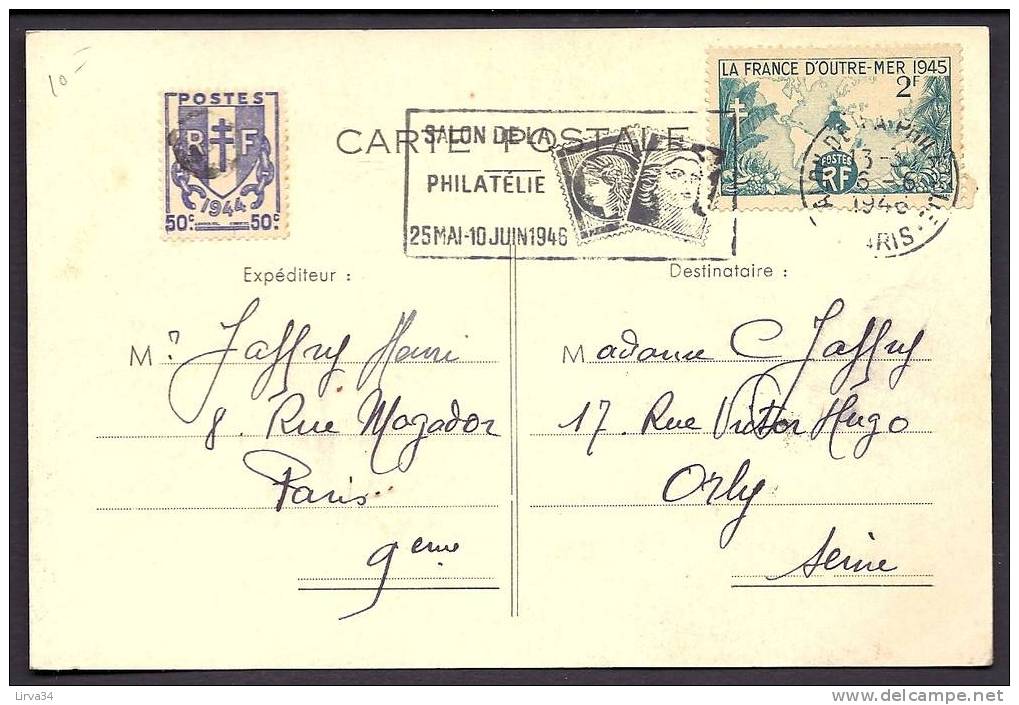 10-
POSTES
RF
1944
50c 50c
CARTE POSTALE
SALON DE LA
PHILATÉLIE
25 MAI-10 JUIN 1946
LA FRANCE D'OUTRE-MER 1945
2F
POSTES
RF
1946
Expéditeur :
Mr Jaffry Henri
8. Rue Mogador
Paris
9eme
Destinataire :
Madame C Jaffry
17. Rue Victor Hugo
Orly
Seine
Lirva34
www.delcampe.net